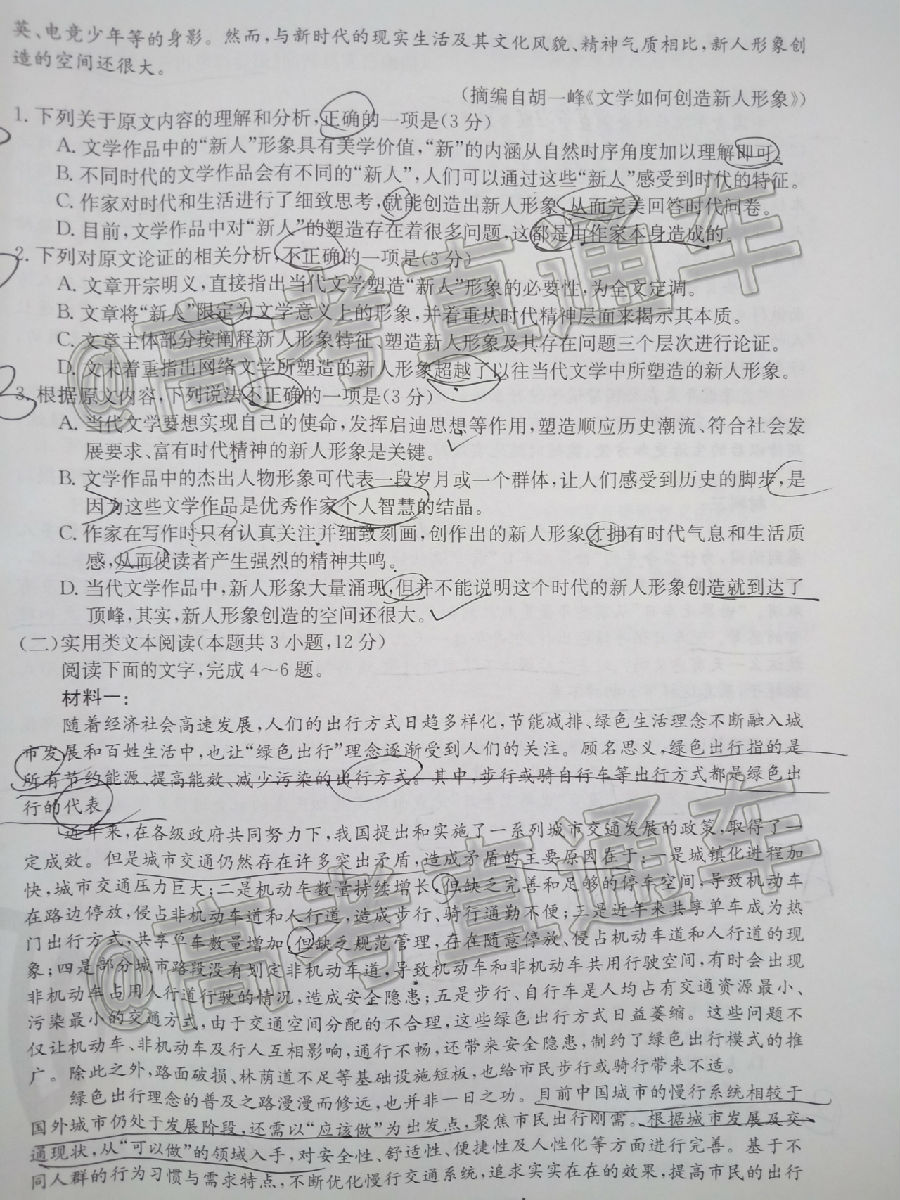 英、电竞少年等的身影。然而,与新时代的现实生活及其文化风貌、精神气质相比,新人形象创
造的空间还很大。
(摘编自胡一峰《文学如何创造新人形象》)
1. 下列关于原文内容的理解和分析,正确的一项是(3分)
A. 文学作品中的“新人”形象具有美学价值,“新”的内涵从自然时序角度加以理解即可。
B. 不同时代的文学作品会有不同的“新人”,人们可以通过这些“新人”感受到时代的特征。
C. 作家对时代和生活进行了细致思考,就能创造出新人形象,从而完美回答时代问卷。
D. 目前,文学作品中对“新人”的塑造存在着很多问题,这都是由作家本身造成的。
2. 下列对原文论证的相关分析,不正确的一项是(3分)
A. 文章开宗明义,直接指出当代文学塑造“新人”形象的必要性,为全文定调。
B. 文章将“新人”限定为文学意义上的形象,并着重从时代精神层面来揭示其本质。
C. 文章主体部分按阐释新人形象特征、塑造新人形象及其存在问题三个层次进行论证。
D. 文末着重指出网络文学所塑造的新人形象超越了以往当代文学中所塑造的新人形象。
3. 根据原文内容,下列说法不正确的一项是(3分)
A. 当代文学要想实现自己的使命,发挥启迪思想等作用,塑造顺应历史潮流、符合社会发
展要求、富有时代精神的新人形象是关键。
B. 文学作品中的杰出人物形象可代表一段岁月或一个群体,让人们感受到历史的脚步,是
因为这些文学作品是优秀作家个人智慧的结晶。
C. 作家在写作时只有认真关注并细致刻画,创作出的新人形象才拥有时代气息和生活质
感,从而使读者产生强烈的精神共鸣。
D. 当代文学作品中,新人形象大量涌现,但并不能说明这个时代的新人形象创造就到达了
顶峰,其实,新人形象创造的空间还很大。
(二)实用类文本阅读(本题共3小题,12分)
阅读下面的文字,完成4~6题。
材料一:
随着经济社会高速发展,人们的出行方式日趋多样化,节能减排、绿色生活理念不断融入城
市发展和百姓生活中,也让“绿色出行”理念逐渐受到人们的关注。顾名思义,绿色出行指的是
所有节约能源、提高能效、减少污染的出行方式。其中,步行或骑自行车等出行方式都是绿色出
行的代表。
近年来,在各级政府共同努力下,我国提出和实施了一系列城市交通发展的政策,取得了一
定成效。但是城市交通仍然存在许多突出矛盾,造成矛盾的主要原因在于:一是城镇化进程加
快,城市交通压力巨大;二是机动车数量持续增长,但缺乏完善和足够的停车空间,导致机动车
在路边停放,侵占非机动车道和人行道,造成步行、骑行通勤不便;三是近年来共享单车成为热
门出行方式,共享单车数量增加,但缺乏规范管理,存在随意停放、侵占机动车道和人行道的现
象;四是部分城市路段没有划定非机动车道,导致机动车和非机动车共用行驶空间,有时会出现
非机动车占用人行道行驶的情况,造成安全隐患;五是步行、自行车是人均占有交通资源最小、
污染最小的交通方式,由于交通空间分配的不合理,这些绿色出行方式日益萎缩。这些问题不
仅让机动车、非机动车及行人互相影响,通行不畅,还带来安全隐患,制约了绿色出行模式的推
广。除此之外,路面破损、林荫道不足等基础设施短板,也给市民步行或骑行带来不适。
绿色出行理念的普及之路漫漫而修远,也并非一日之功。目前中国城市的慢行系统相较于
国外城市仍处于发展阶段,还需以“应该做”为出发点,聚焦市民出行刚需。根据城市发展及交
通现状,从“可以做”的领域入手,对安全性、舒适性、便捷性及人性化等方面进行完善。基于不
同人群的行为习惯与需求特点,不断优化慢行交通系统,追求实实在在的效果,提高市民的出行
@高考直通车
@高考直通车